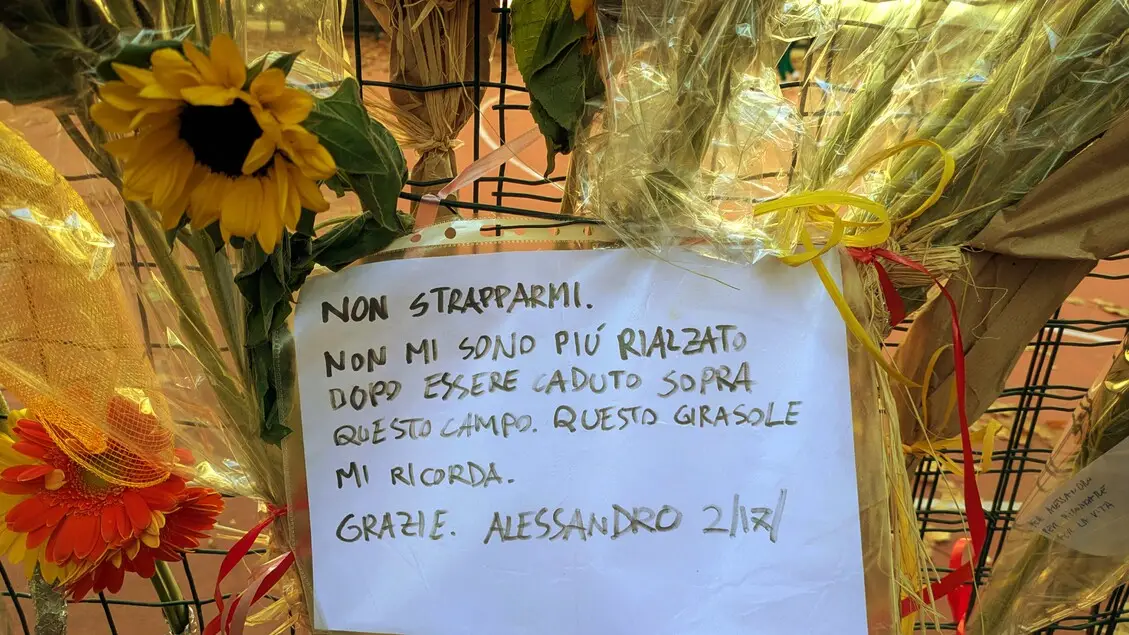 NON STRAPPARMI.
NON MI SONO PIÚ RIALZATO
DOPO ESSERE CADUTO SOPRA
QUESTO CAMPO. QUESTO GIRASOLE
MI RICORDA.
GRAZIE. ALESSANDRO 2/17/
LA VITA